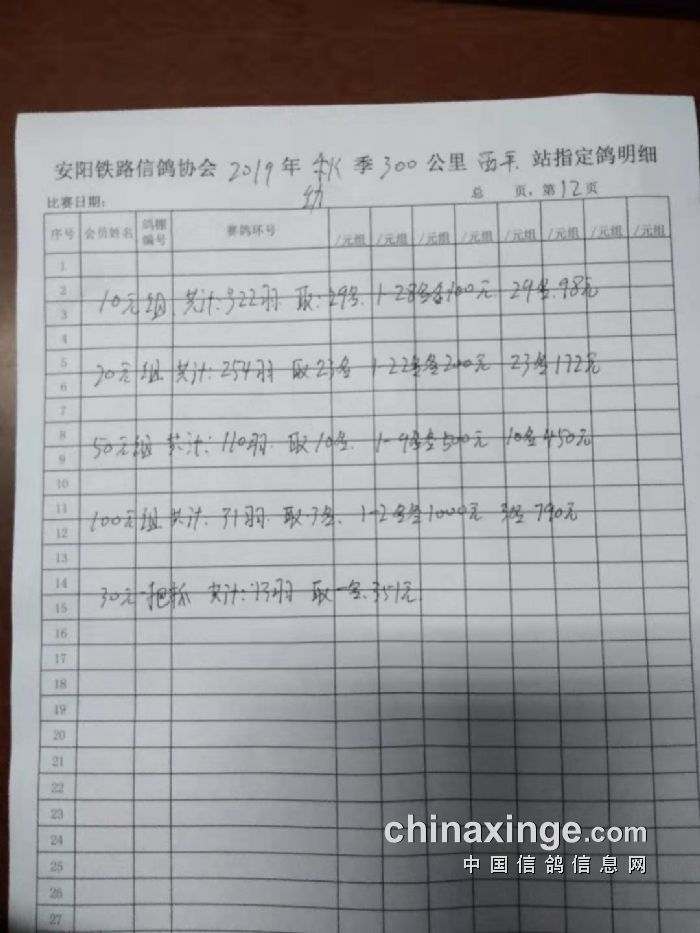 安阳铁路信鸽协会 2019 年 秋 季 300 公里 西平 站指定鸽明细
幼
比赛日期: 总 页,第12页
序号 会员姓名 鸽棚编号 赛鸽环号 /元组 /元组 /元组 /元组 /元组 /元组 /元组 /元组
1
2
10元组 共计:322羽 取:29名 1-28名各100元 29名.98元
3
4
5
20元组 共计:254羽 取23名 1-22名各200元 23名172元
6
7
8
50元组 共计:110羽 取10名 1-9名各500元 10名450元
9
10
11
100元组 共计:31羽 取3名 1-2名各1000元 3名790元
12
13
14
30元一把抓 共计:13羽 取一名.351元
15
16
17
18
19
20
21
22
23
24
25
26
27
chinaxinge.com
中国信鸽信息网